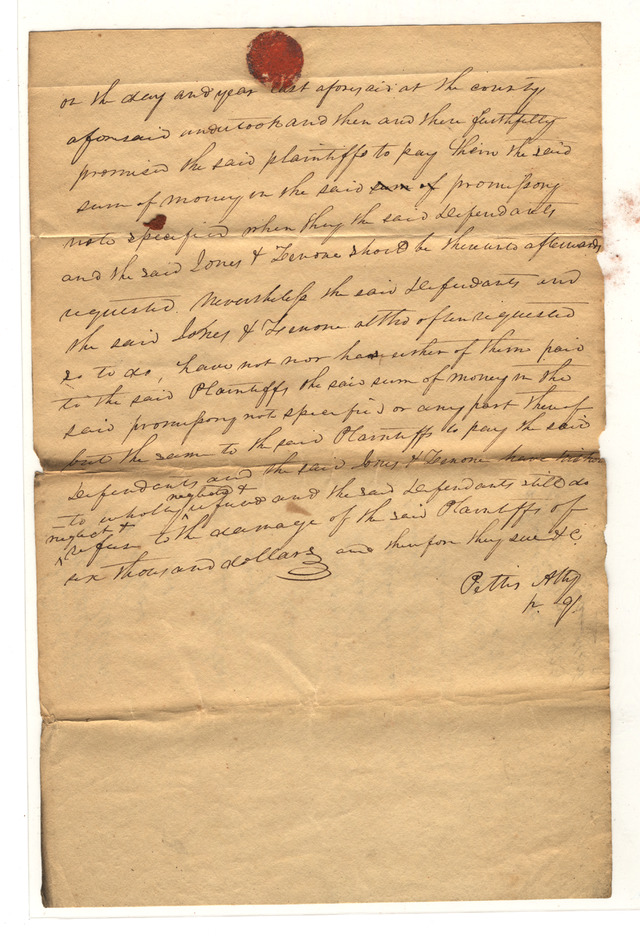 on the day and year last aforesaid at the county
aforesaid undertook and then and there faithfully
promised the said plaintiffs to pay them the said
sum of money in the said sum of promissory
note specified when they the said Defendants
and the said Jones & Lenone should be thereunto afterwards
requested. Nevertheless the said Defendants and
the said Jones & Lenone altho often requested
so to do, have not nor has either of them paid
to the said Plaintiffs the said sum of money in the
said promissory note specified or any part thereof
but the same to the said Plaintiffs to pay the said
Defendants and the said Jones & Lenone have hitherto
neglect &
to wholly refused and the said Defendants still do
neglect &
refuse to the damage of the said Plaintiffs of
six thousand dollars and therefore they sue &c
Pettis Atty
p. q.